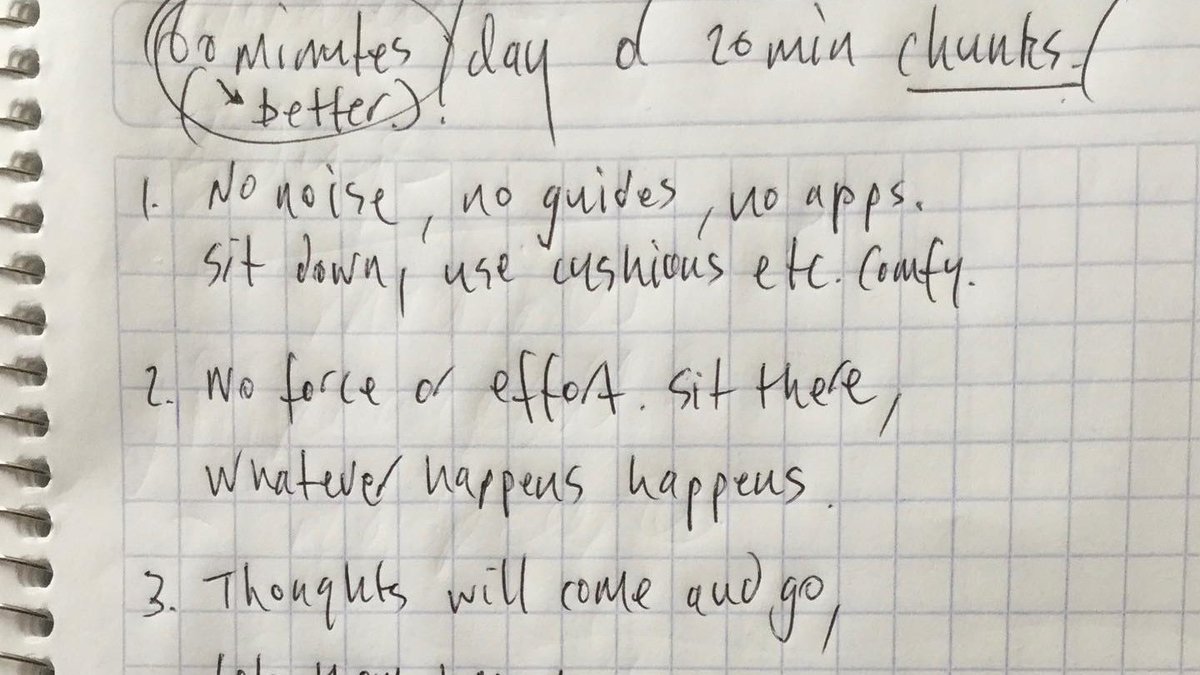 60 minutes / day or 20 min chunks.
(↘ better.)!
1. No noise, no guides, no apps.
sit down, use cushions etc. Comfy.
2. No force or effort. Sit there,
Whatever happens happens.
3. Thoughts will come and go,